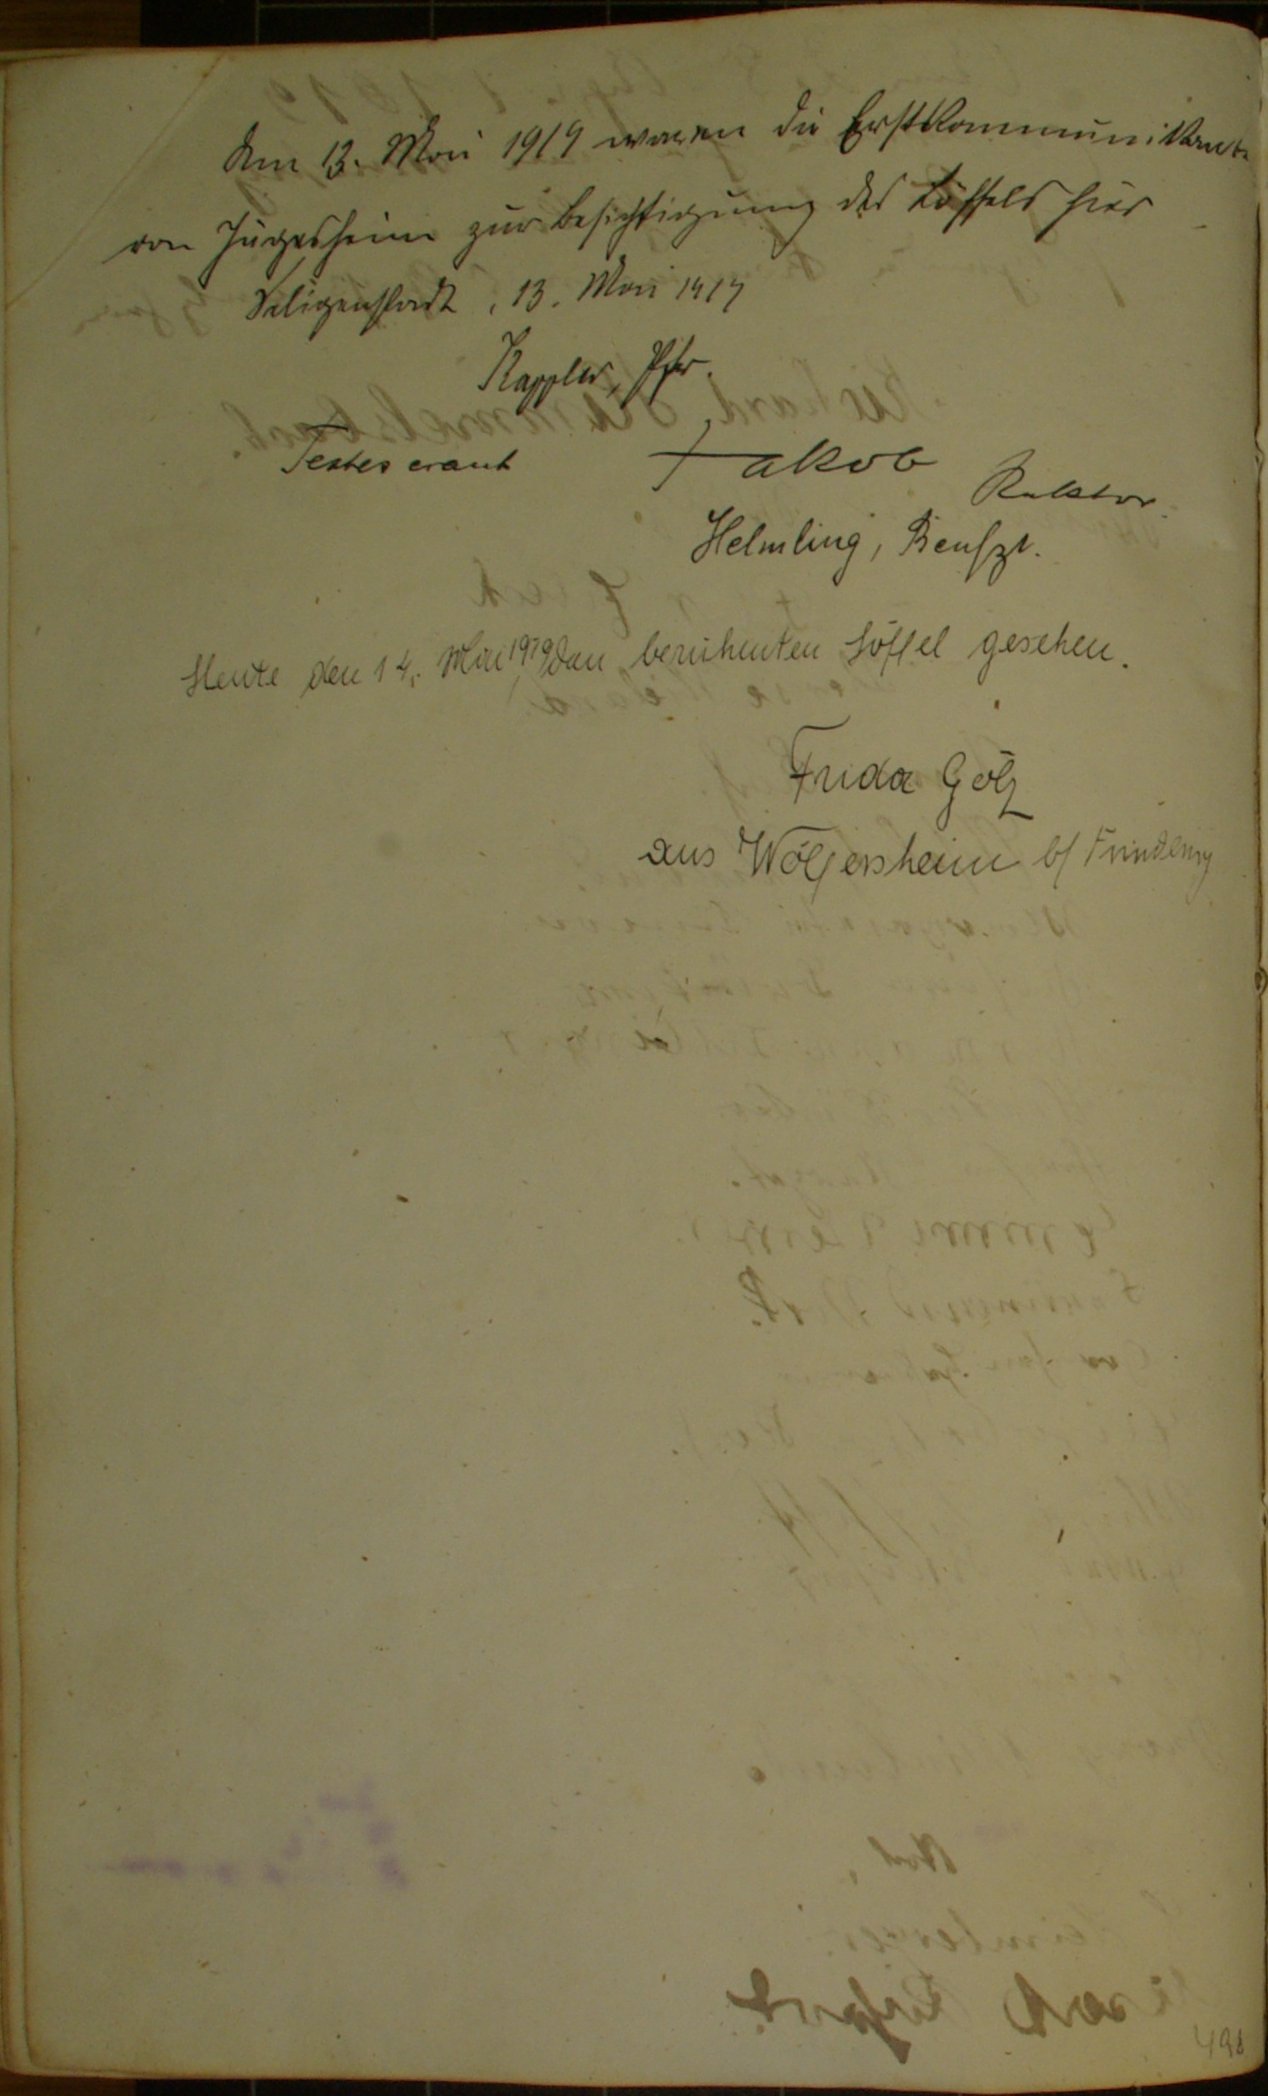 Am 13. Mai 1919 waren die Erstkommunikanten
von Jügesheim zur Besichtigung des Löffels hier
Seligenstadt, 13. Mai 1919
Kappler, Pfr.
Testes erant Jakob Rektor.
Helmling, Benfzt.
Heute den 14. Mai 1919 den berühmten Löffel gesehen.
Frida Gölz
aus Wölfersheim b/ Friedberg
498